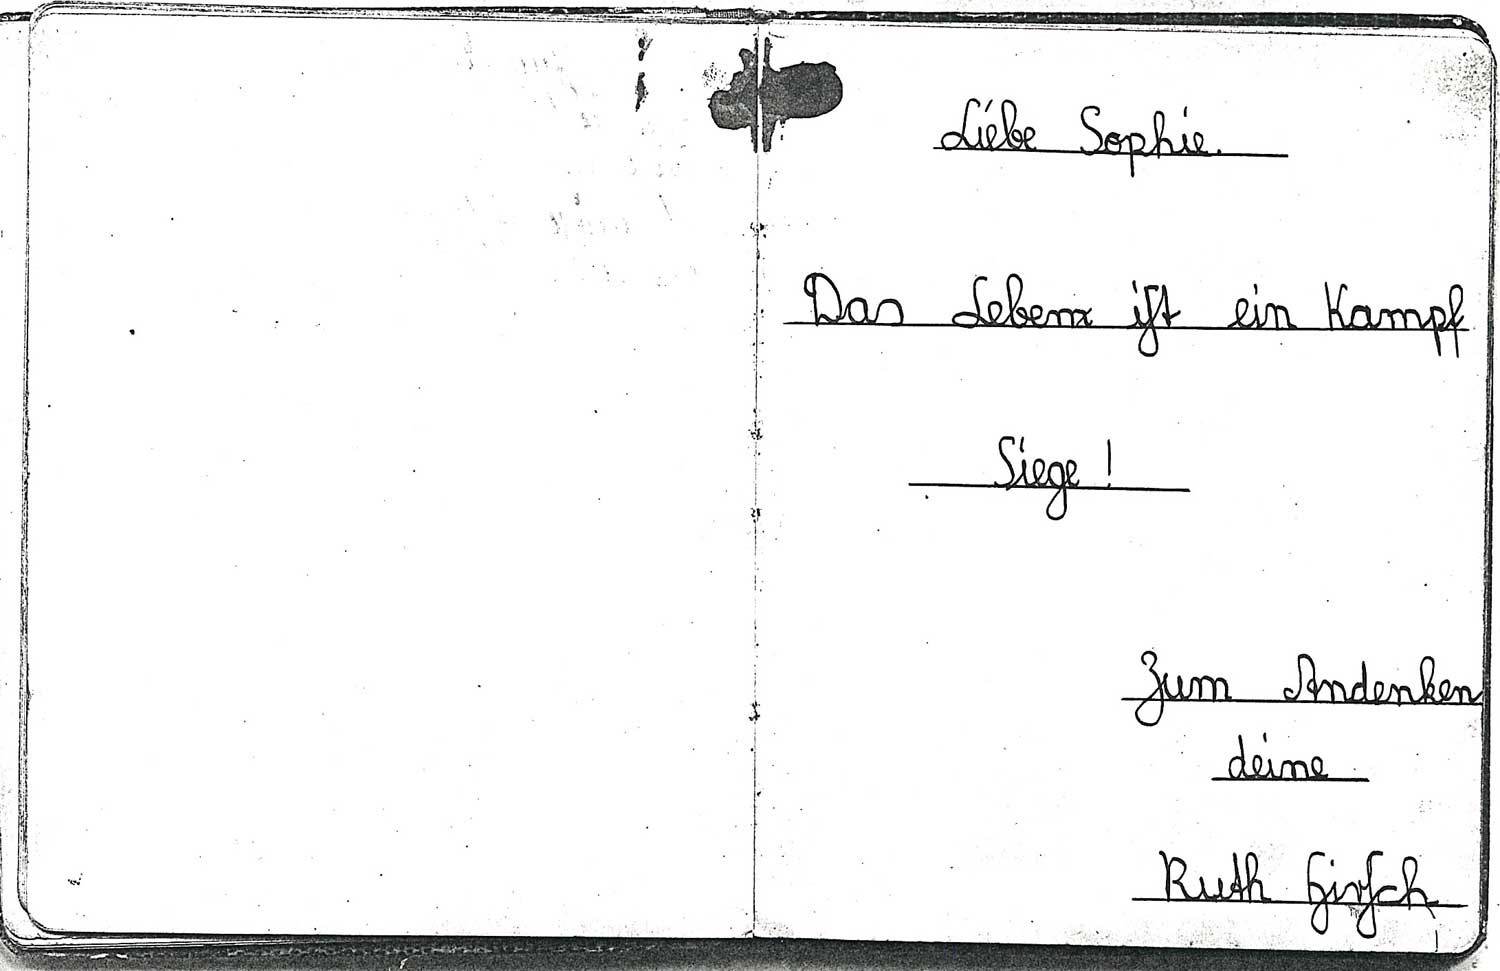 Liebe Sophie.
Das Leben ist ein Kampf
Siege!
Zum Andenken
deine
Ruth Hirsch